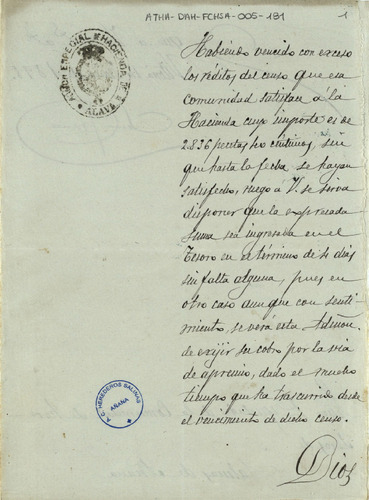 ATHA-DAH-FCHSA-005-181
1
ADMON ESPECIAL DE HACIENDA DE
ALAVA
Habiendo vencido con exceso
los réditos del censo que esa
comunidad satisface á la
Hacienda cuyo importe es de
2.836 pesetas céntimos, sin
que hasta la fecha se hayan
satisfecho, ruego á V. se sirva
disponer que la expresada
suma sea ingresada en el
Tesoro en el término de días
sin falta alguna, pues en
otro caso aunque con senti-
miento, se verá esta Admon.
de exijir su cobro por la vía
de apremio, dado el mucho
tiempo que ha trascurrido desde
el vencimiento de dicho censo.
Dios
C. HEREDEROS SALINAS
AÑANA